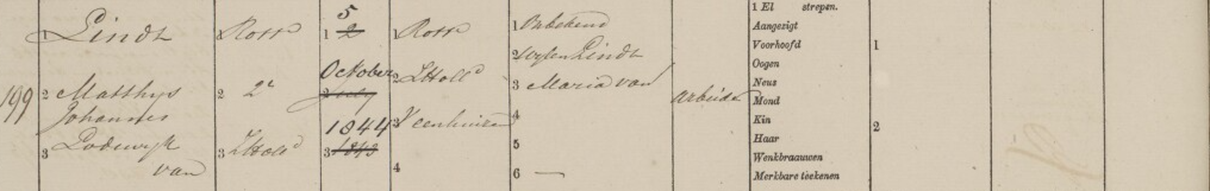 199
1 Lindt
2 Matthys
Johannes
3 Lodewyk
van
1 Rott
2 2e
3 ZHolld
5
1 2
October
2 July
1844
3 1843
1 Rott
2 ZHolld
3 Veenhuizen
4
1 Onbekend
2 Wylen Lindt
3 Maria van
4
5
6 —
Arbeider
1 El strepen.
Aangezigt
Voorhoofd
Oogen
Neus
Mond
Kin
Haar
Wenkbraauwen
Merkbare teekenen
1
2